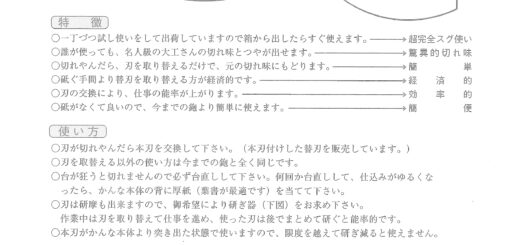 特徴
○一丁づつ試し使いをして出荷していますので箱から出したらすぐ使えます。→超完全スグ使い
○誰が使っても、名人級の大工さんの切れ味とつやが出せます。→驚異的切れ味
○切れやんだら、刃を取替えるだけで、元の切れ味にもどります。→簡単
○砥ぐ手間より替刃を取替える方が経済的です。→経済的
○刃の交換により、仕事の能率が上がります。→効率的
○砥がなくて良いので、今までの鉋より簡単に使えます。→簡便
使い方
○刃が切れやんだら本刃を交換して下さい。(本刃付けした替刃を販売しています。)
○刃を取替える以外の使い方は今までの鉋と全く同じです。
○台が狂うと切れませんので必ず台直しして下さい。何回か台直しして、仕込みがゆるくな
ったら、かんな本体の背に厚紙(葉書が最適です)を当て下さい。
○刃は研摩も出来ますので、御希望により研ぎ器(下図)をお求め下さい。
作業中は刃を取り替えて仕事を進め、使った刃は後でまとめて研ぐと能率的です。
○本刃がかんな本体より突き出た状態で使いますので、限度を越えて研ぎ減ると使えません。